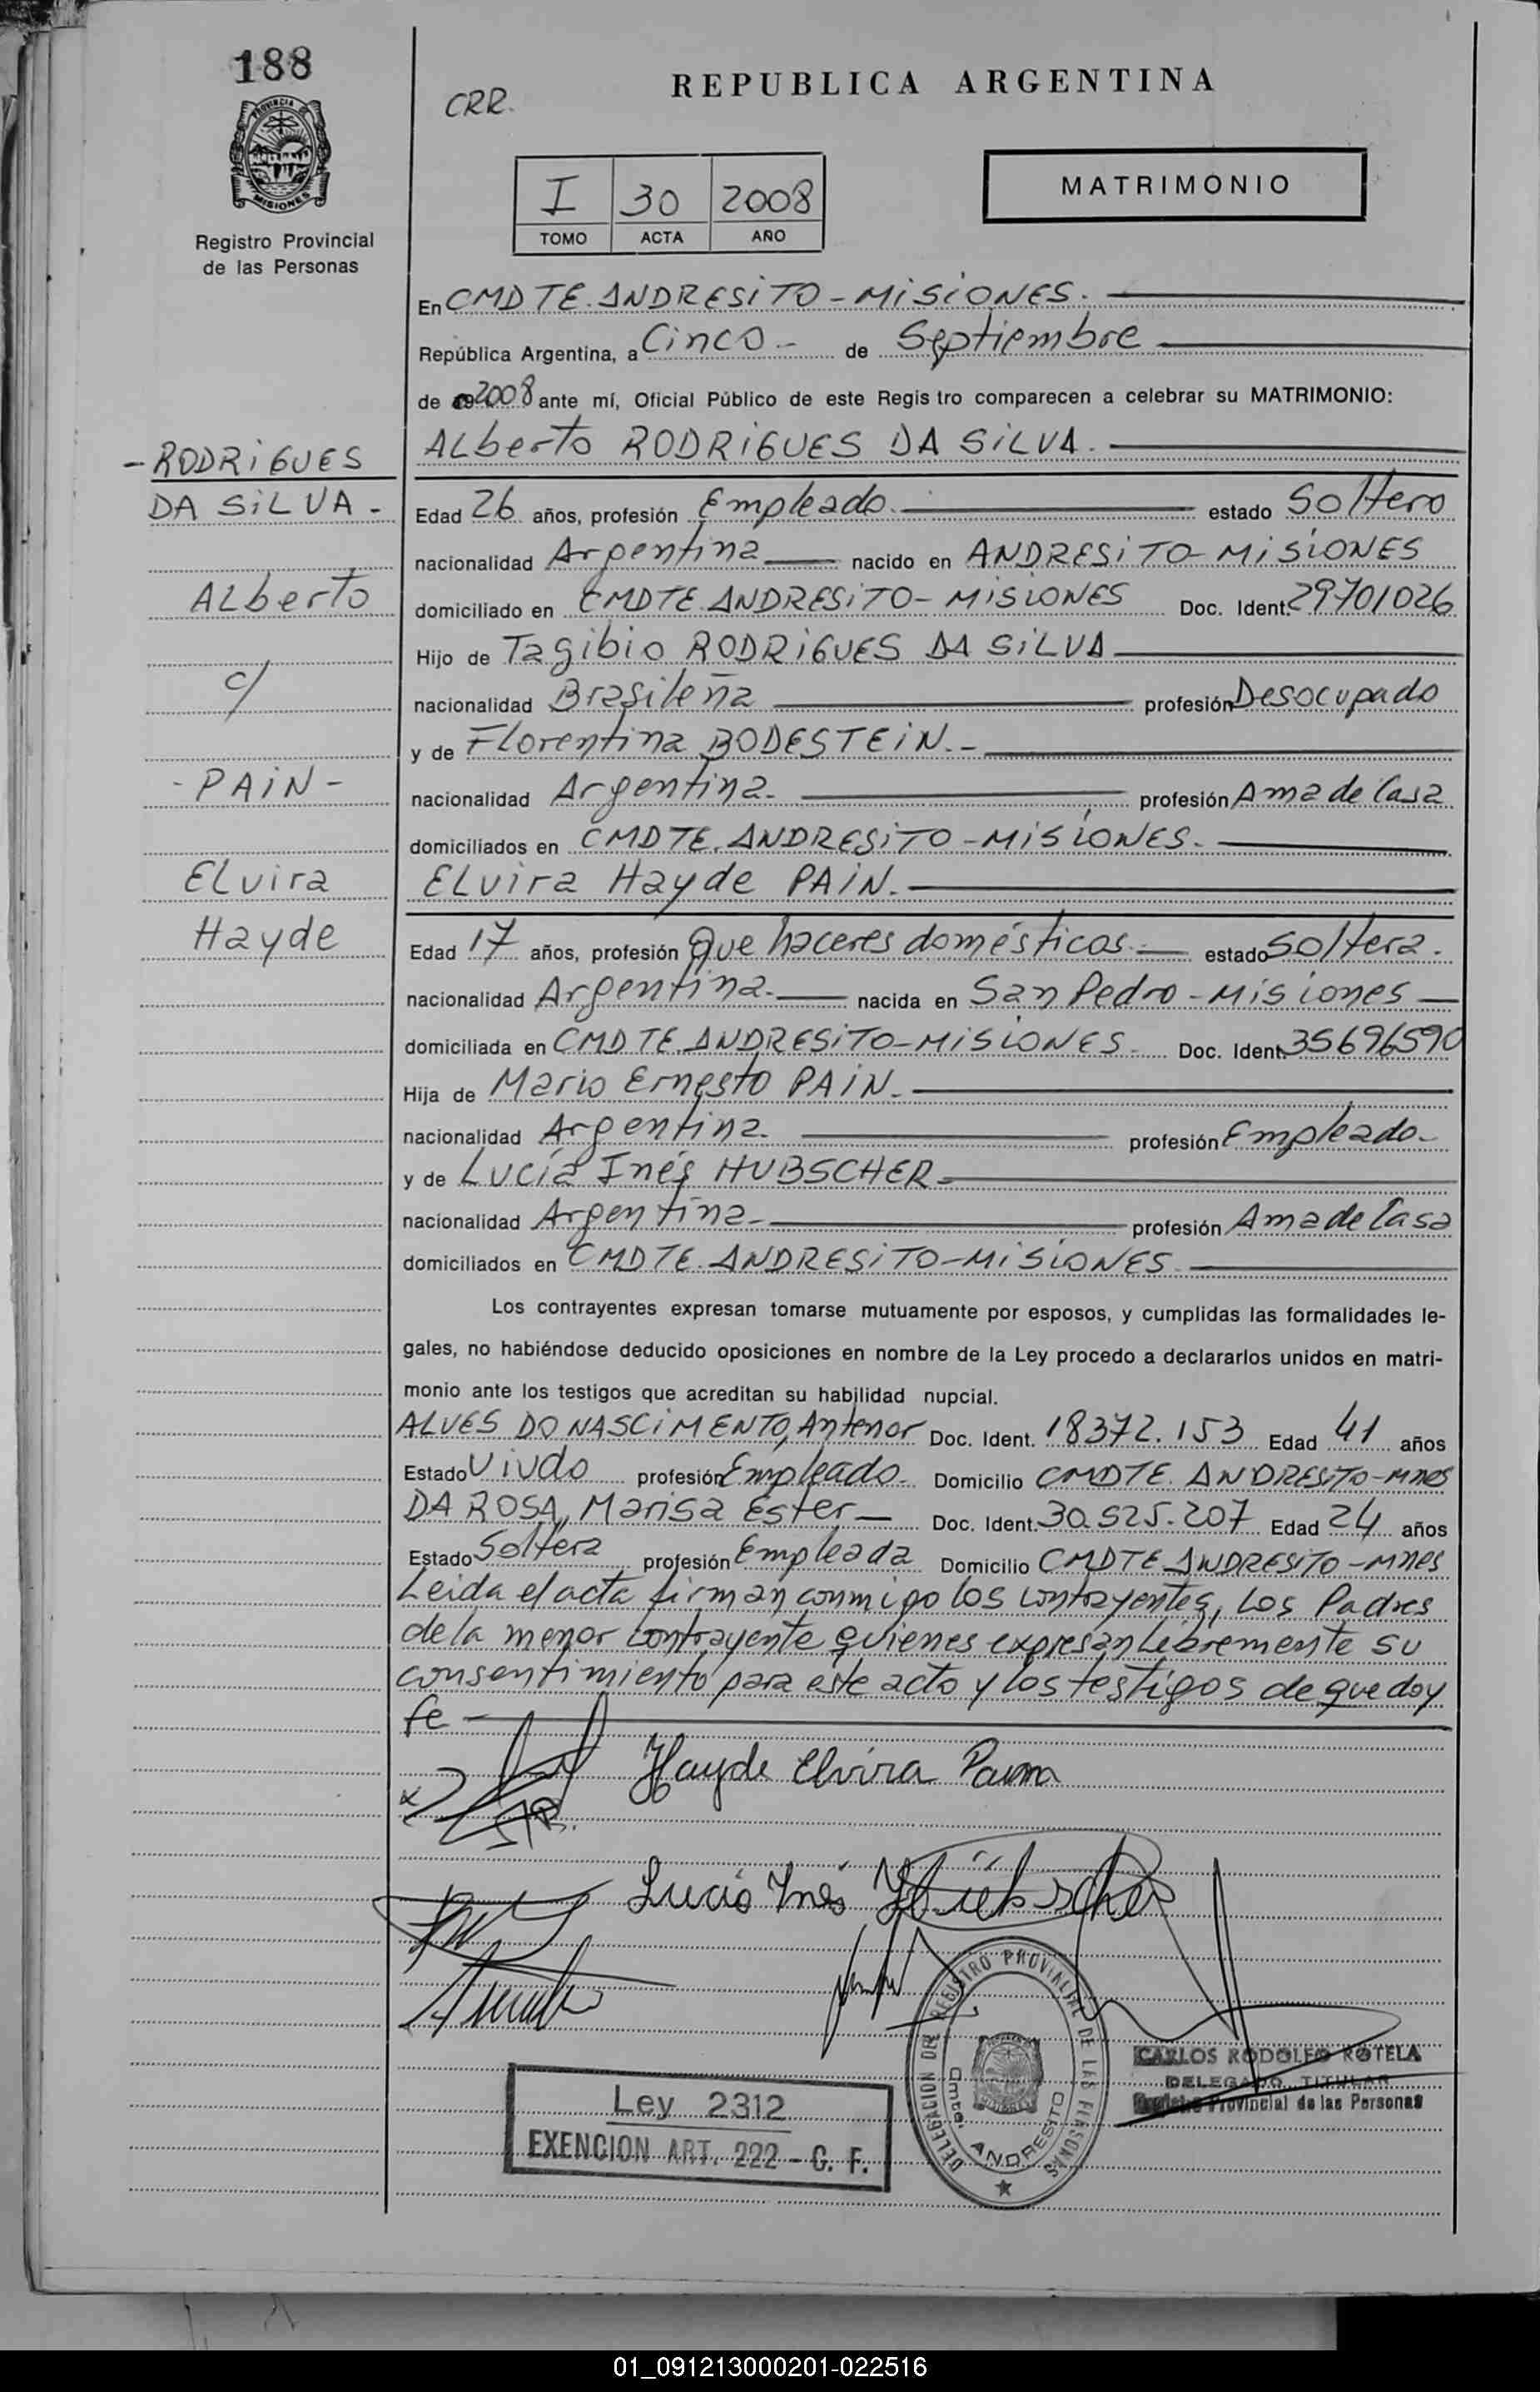 188
PROVINCIA
MISIONES
Registro Provincial
de las Personas
CRR.
REPUBLICA ARGENTINA
I 30 2008
TOMO ACTA AÑO
MATRIMONIO
En CMDTE. ANDRESiTO - MiSiONES.
República Argentina, a Cinco - de Septiembre
de 2008 ante mí, Oficial Público de este Regis tro comparecen a celebrar su MATRIMONIO:
- RODRiGUES
DA SiLVA -
ALberto
c/
- PAiN -
ELvira
Hayde
ALberto RODRiGUES DA SiLVA.
Edad 26 años, profesión Empleado. estado Soltero
nacionalidad Argentina nacido en ANDRESiTO - MiSiONES
domiciliado en CMDTE. ANDRESiTO - MiSiONES Doc. Ident. 29701026
Hijo de Tagibio RODRiGUES DA SiLVA
nacionalidad Brasileña profesión Desocupado
y de FLorentina BODESTEiN. -
nacionalidad Argentina. profesión Ama de Casa
domiciliados en CMDTE. ANDRESiTO - MiSiONES.
ELvira Hayde PAiN.
Edad 17 años, profesión Que haceres domésticos. estado soltera.
nacionalidad Argentina. nacida en San Pedro - Misiones
domiciliada en CMDTE. ANDRESiTO - MiSiONES. Doc. Ident. 35696590
Hija de Mario Ernesto PAiN.
nacionalidad Argentina. profesión Empleado.
y de Lucía Inés HUBSCHER.
nacionalidad Argentina. profesión Ama de Casa
domiciliados en CMDTE. ANDRESiTO - MiSiONES
Los contrayentes expresan tomarse mutuamente por esposos, y cumplidas las formalidades le-
gales, no habiéndose deducido oposiciones en nombre de la Ley procedo a declararlos unidos en matri-
monio ante los testigos que acreditan su habilidad nupcial.
ALVES DO NASCiMENTO, Antenor Doc. Ident. 18372.153 Edad 41 años
Estado Viudo profesión Empleado. Domicilio CMDTE. ANDRESiTO - Mnes
DA ROSA, Marisa Ester Doc. Ident. 30.525.207 Edad 24 años
Estado Soltera profesión Empleada Domicilio CMDTE ANDRESiTO - Mnes
Leida el acta firman conmigo los contrayentes, Los Padres
de la menor contrayente quienes expresan Libremente su
consentimiento para este acto y los testigos de que doy
fe
Hayde Elvira
Lucia Inés Hübscher
DELEGACION DEL REGISTRO PROVINCIAL DE LAS PERSONAS
Cmte. ANDRESITO
CARLOS RODOLFO ROTELA
DELEGADO TITULAR
Registro Provincial de las Personas
Ley 2312
EXENCION ART. 222 - C. F.
01_091213000201-022516